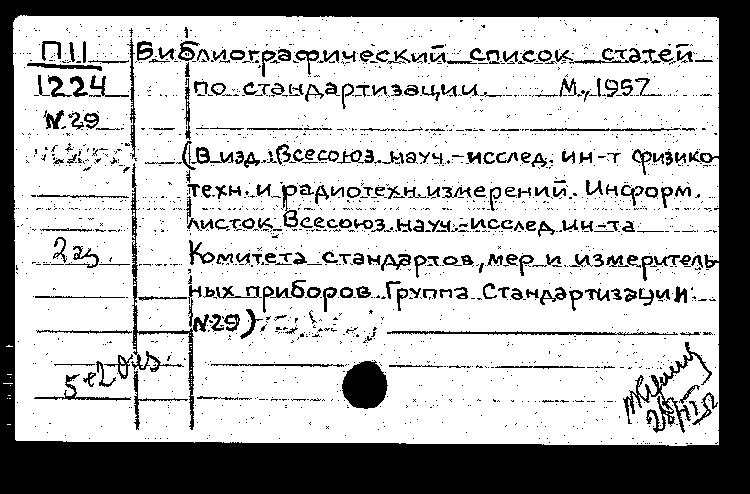 П11 Библиографический список статей
1224 по стандартизации. М., 1957
N29
(В изд.: Всесоюз. науч.-исслед. ин-т физико-
техн. и радиотехн. измерений. Информ.
листок Всесоюз. науч.-исслед. ин-та
2 эз. Комитета стандартов, мер и измеритель-
ных приборов. Группа Стандартизации.
N29)